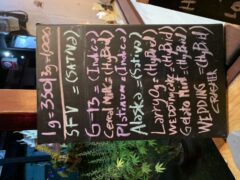 1g = 350฿
SFV = (SATIVA)
G-13 = (Indica)
Cereal Milk = (HyBrid)
Platinum = (Indica)
Alaska = (Sativa)
Larry OG = (HyBrid)
WEDDING CAKE = (HyBrid)
Gelato Mint = (HyBrid)
WEDDING = (HyBrid)
CRASHER